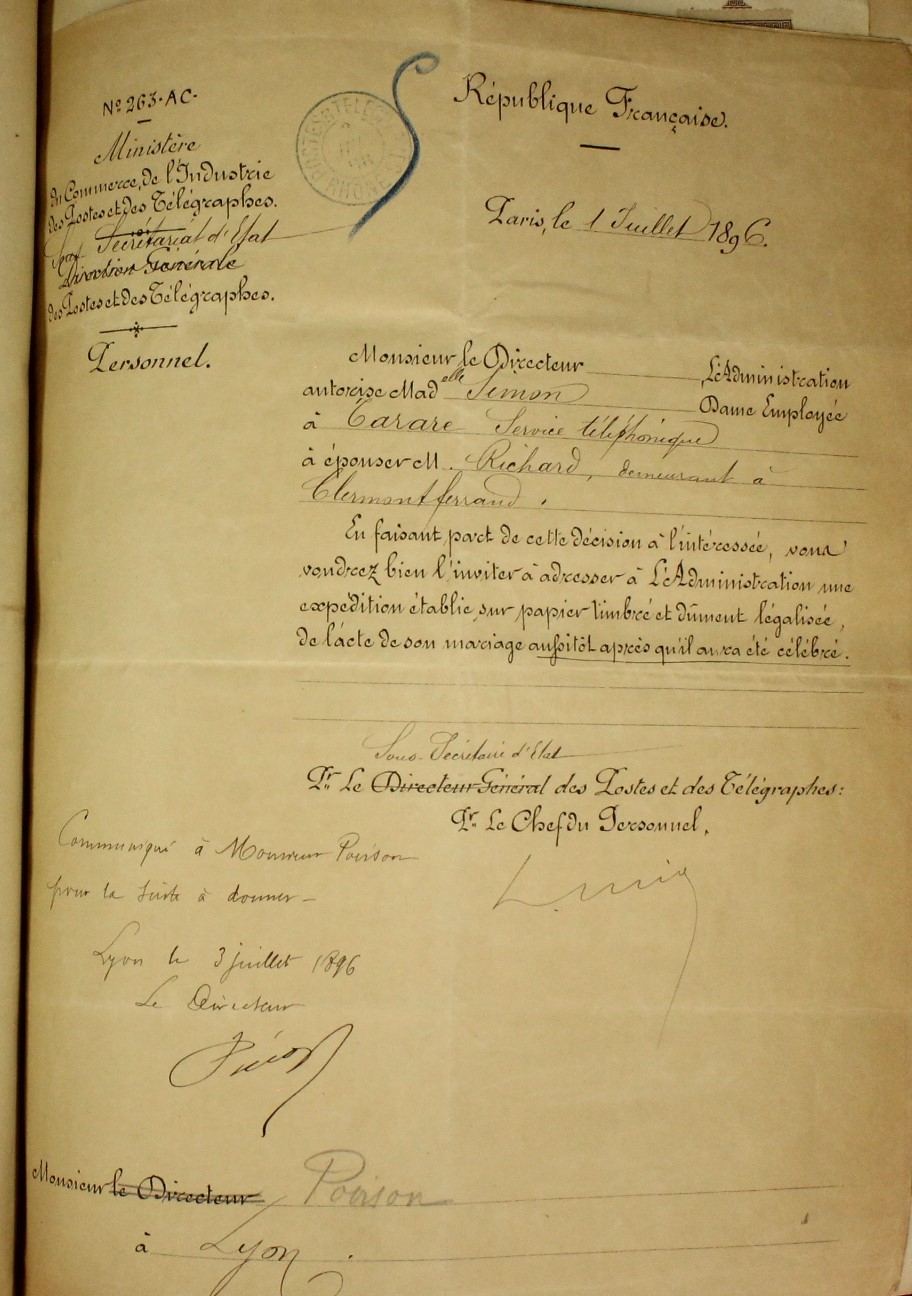 Nº 263. AC.
Ministère
du Commerce, de l'Industrie
des Postes et des Télégraphes.
Sous Secrétariat d'Etat
Direction Générale
des Postes et des Télégraphes.
Personnel.
POSTES & TELEG
RHONE
République Française.
Paris, le 1 Juillet 1896.
Monsieur le Directeur L'Administration
autorise Mad elle Simon Dame Employée
à Tarare Service téléphonique
à épouser M. Richard, demeurant à
Clermont ferrand.
En faisant part de cette décision à l'intéressée, vous
voudrez bien l'inviter à adresser à L'Administration une
expédition établie, sur papier timbré et dûment légalisée,
de l'acte de son mariage aussitôt après qu'il aura été célébré.
Sous-Secrétaire d'Etat
Pr. Le Directeur Général des Postes et des Télégraphes:
Pr. Le Chef du Personnel,
Communiqué à Monsieur Poirson
pour la suite à donner -
Lyon le 3 juillet 1896
Le Directeur
Monsieur le Directeur Poirson
à Lyon.